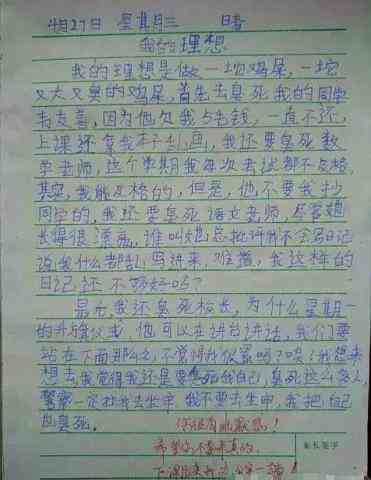 4月27日 星期三 晴
我的理想
我的理想是做一坨鸡屎,一坨
又大又臭的鸡屎,首先去臭死我的同学
韦友善,因为他欠我5毛钱,一直不还,
上课还拿我本子乱画,我还要臭死数
学老师,这个学期我每次考试都不及格,
其实,我能及格的,但是,他不要我抄
同学的,我还要臭死语文老师,尽管她
长得很漂亮,谁叫她总批评我不会写日记
说我什么都乱写进来,难道,我这样的
日记还不够好吗?
最后,我还臭死校长,为什么星期一
的升旗仪式他可以在讲台讲话,我们要
站在下面那么久,不觉得我很累吗?唉!我想来
想去,我觉得我还是要臭死我自己,臭死这么多人,
警察一定拉我去坐牢,我不要去坐牢,我把自己
也臭死。
你很有贡献感!
希望你不要来真的。
下课出来
家长签字